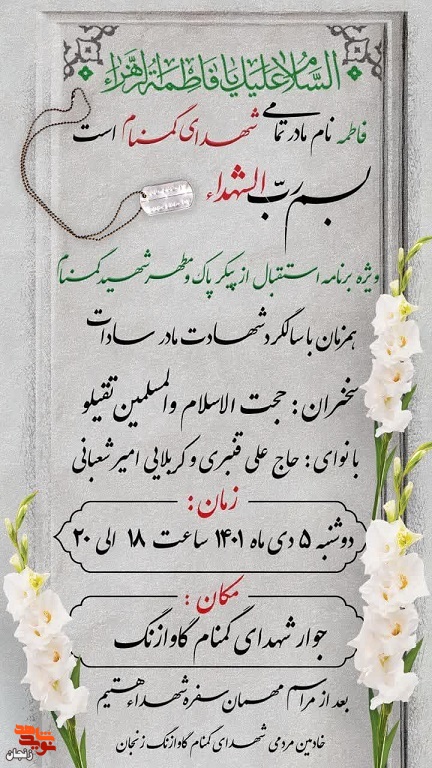 السلام علیک یا فاطمة الزهراء
فاطمه نام مادر تمامی شهدای گمنام است
بسم ربّ الشهداء
ویژه برنامه استقبال از پیکر پاک و مطهر شهید گمنام
همزمان با سالگرد شهادت مادر سادات
سخنران : حجت الاسلام والمسلمین تقیلو
با نوای : حاج علی قنبری و کربلایی امیر شعبانی
زمان :
دوشنبه ۵ دی ماه ۱۴۰۱ ساعت ۱۸ الی ۲۰
مکان :
جوار شهدای گمنام گاوازنگ
بعد از مراسم مهمان سفره شهداء هستیم
خادمین مردمی شهدای گمنام گاوازنگ زنجان
نوید شاهد
زنجان